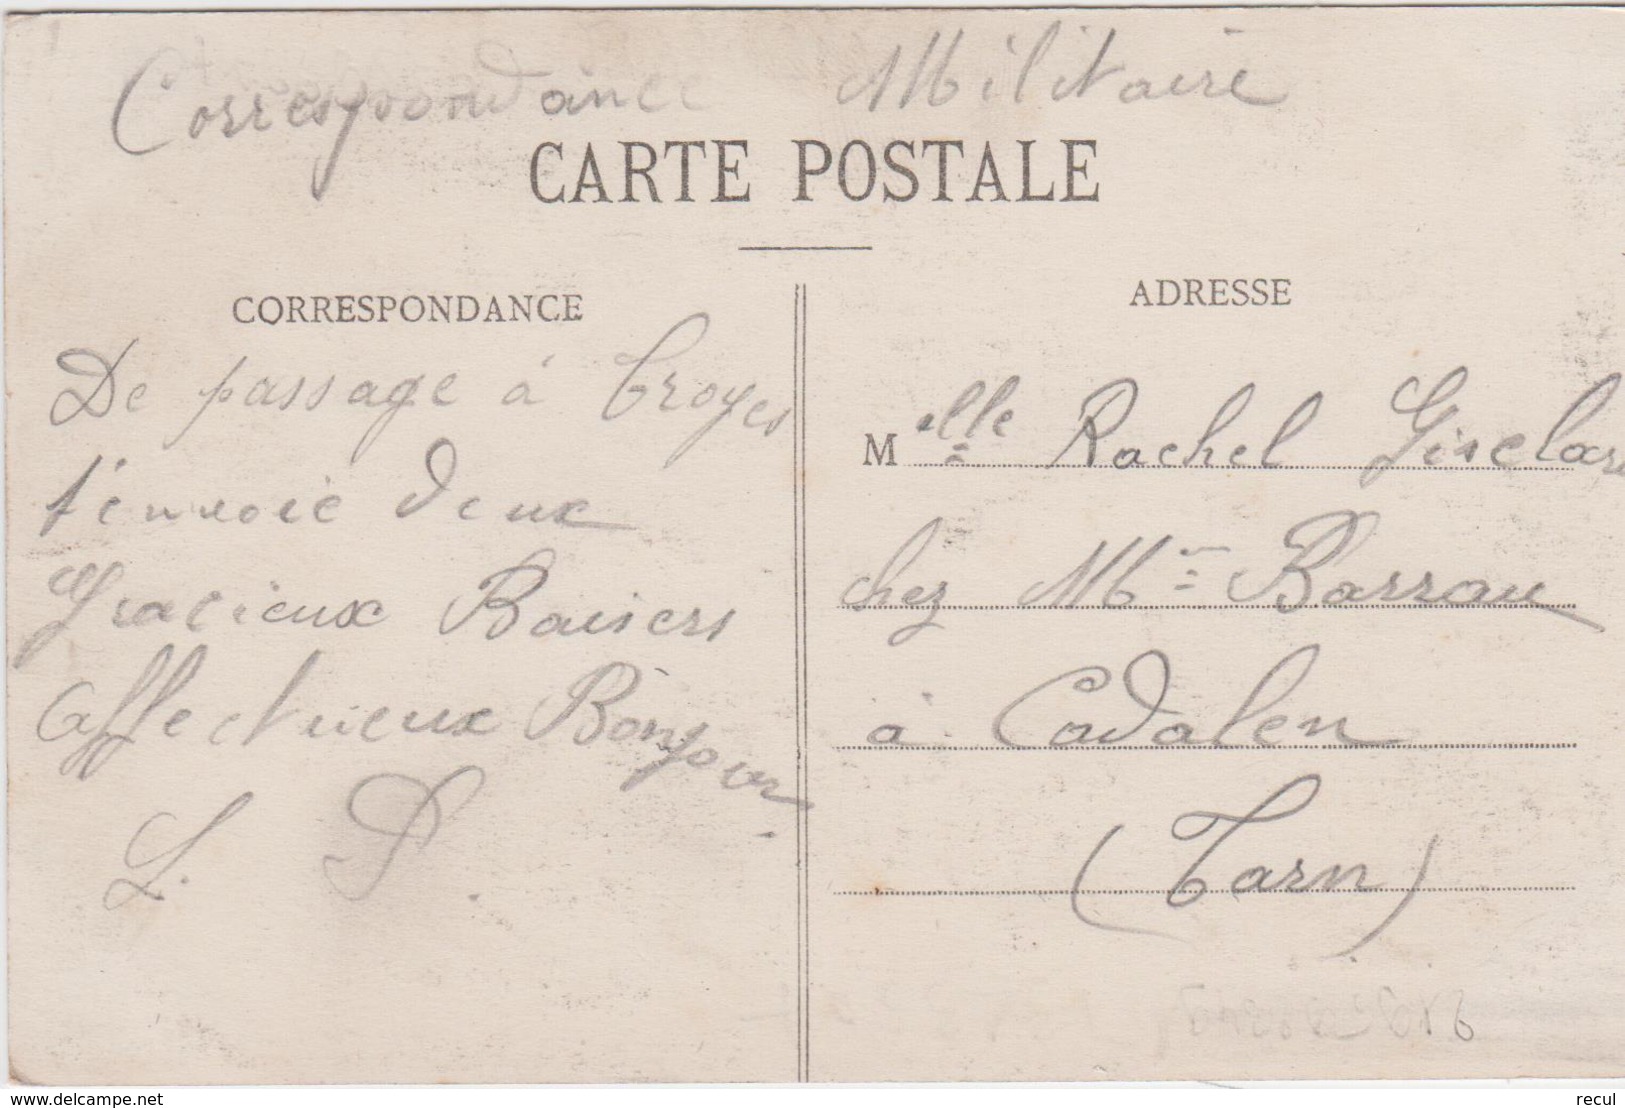 Correspondance Militaire
CARTE POSTALE
CORRESPONDANCE
De passage à Troyes
t'envoie deux
Gracieux Baisers
Affectueux Bonjour
L. P.
ADRESSE
Melle Rachel Gisclard
chez Mr Barrau
à Cadalen
(Tarn)
www.delcampe.net
recul